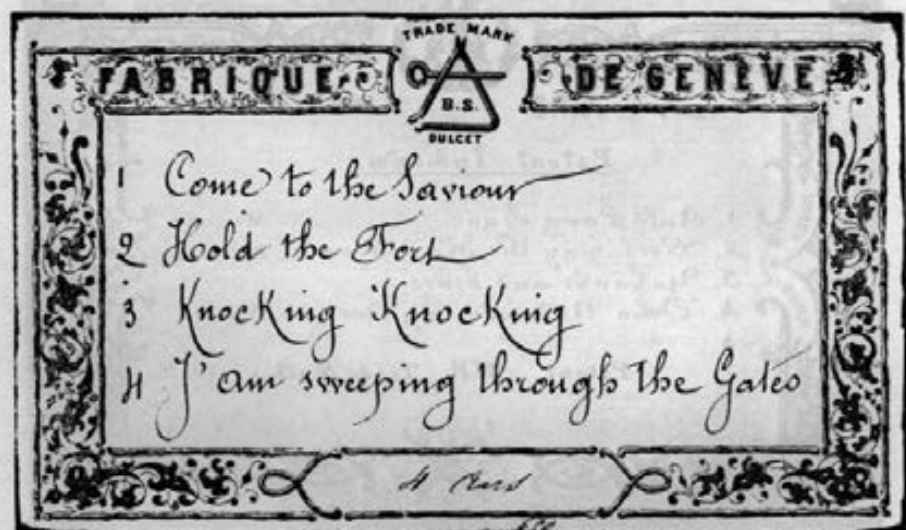 TRADE MARK
FABRIQUE DE GENÈVE
B.S.
DULCET
1 Come to the Saviour
2 Hold the Fort
3 Knocking Knocking
4 J'am sweeping through the Gates
4 Airs